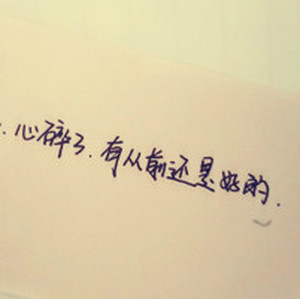 .心碎了.有从前还是好的.